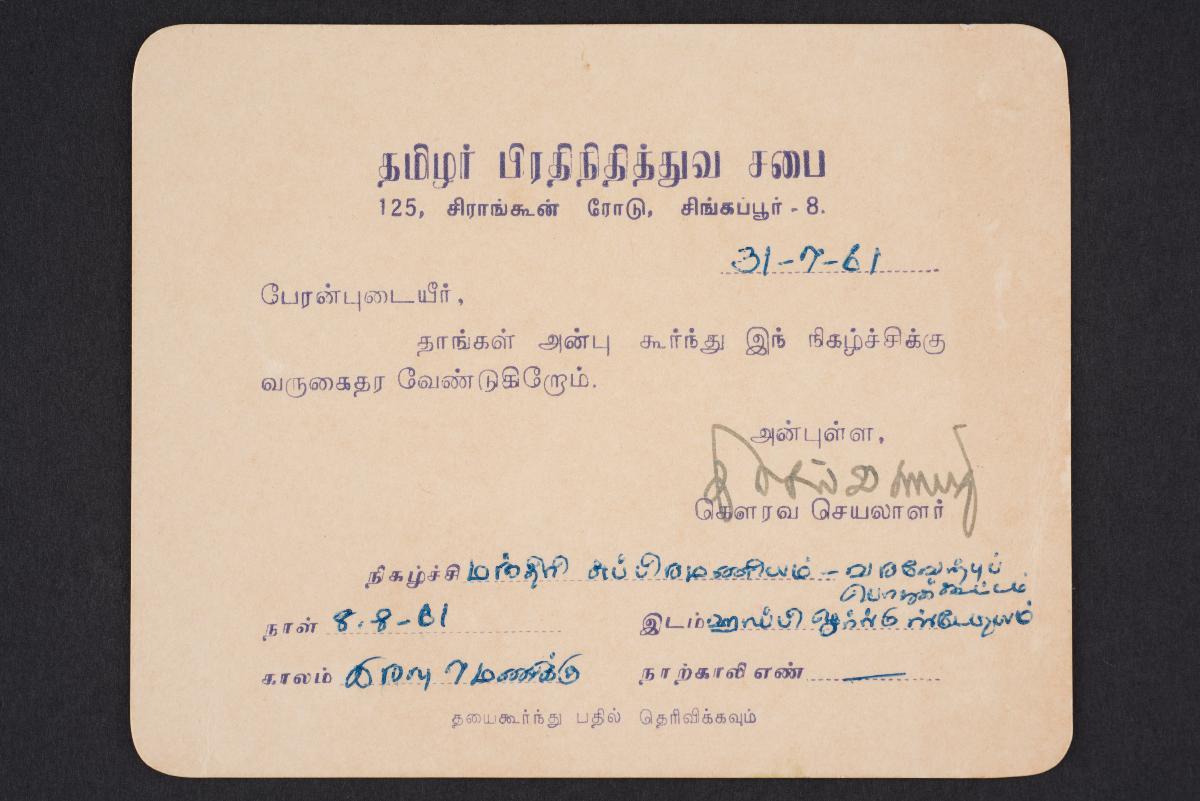 தமிழர் பிரதிநிதித்துவ சபை
125, சிராங்கூன் ரோடு, சிங்கப்பூர் - 8.
31-7-61
பேரன்புடையீர்,
தாங்கள் அன்பு கூர்ந்து இந் நிகழ்ச்சிக்கு
வருகைதர வேண்டுகிறோம்.
அன்புள்ள,
கௌரவ செயலாளர்
நிகழ்ச்சி மந்திரி சுப்பிரமணியம் - வரவேற்புப்
பொதுக்கூட்டம்
நாள் 8-8-61 இடம் ஹாப்பி ஓர்ல்டு ஸ்டேடியம்
காலம் இரவு 7 மணிக்கு நாற்காலி எண் —
தயைகூர்ந்து பதில் தெரிவிக்கவும்